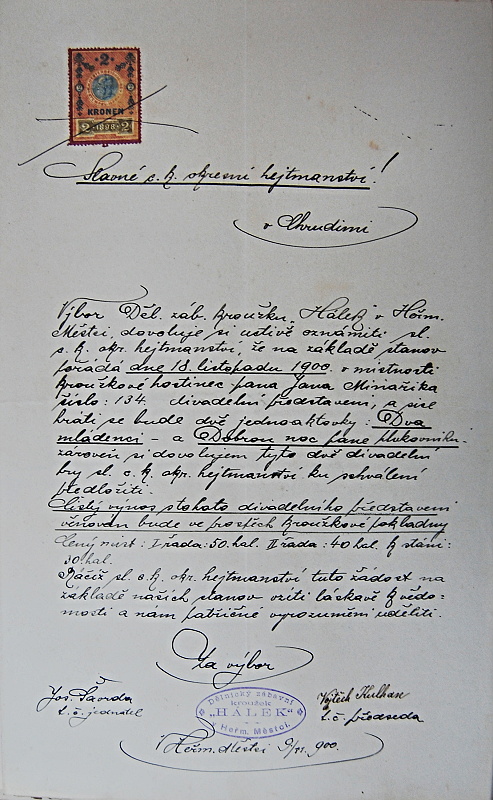 2
KRONEN
2 1898 2
Slavné c. k. okresní hejtmanství!
v Chrudimi
Výbor Děl. záb. kroužku „Hálek" v Heřm.
Městci, dovoluje si uctivě oznámiti sl.
c. k. okr. hejtmanství, že na základě stanov
pořádá dne 18. listopadu 1900. v místnosti
kroužkové hostinec pana Jana
číslo: 134. divadelní představení, a sice
hráti se bude dvě jednoaktovky: Dva
mládenci – a Dobrou noc pane plukovníku.
zároveň si dovolujem tyto dvě divadelní
hry sl. c. k. okr. hejtmanství ku schválení
předložiti.
Čistý výnos tohoto divadelního představení
věnován bude ve prospěch kroužkové pokladny
Ceny míst: I řada: 50. hal. II řada: 40 hal. k stání:
30 hal.
Račiž sl. c. k. okr. hejtmanství tuto žádost na
základě našich stanov vzíti láskavě k vědo-
mosti a nám patřičné vyrozumění uděliti.
Za výbor
Jos. Šavrda
t. č. jednatel
Dělnický zábavní
kroužek
„HÁLEK"
v Heřm. Městci.
Vojtěch Kulhan
t. č. předseda
V Heřm. Městci 9/11 900.